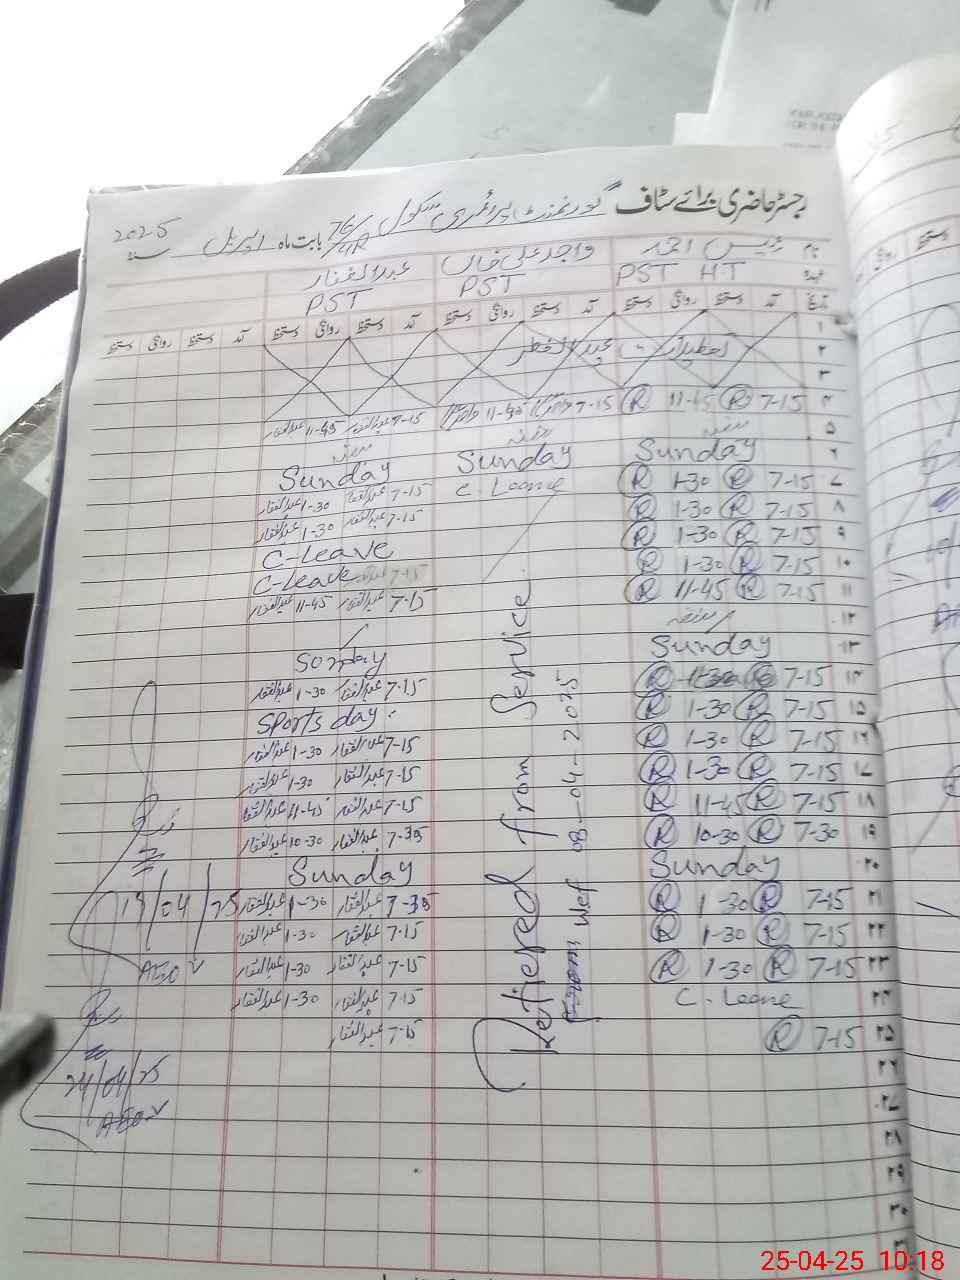 رجسٹر حاضری برائے سٹاف گورنمنٹ پرائمری سکول 76/4R بابت ماہ اپریل سنہ 2025
نام رئیس احمد واجد علی خاں عبدالغفار
عہدہ PST HT PST PST
تاریخ آمد دستخط روانگی دستخط آمد دستخط روانگی دستخط آمد دستخط روانگی دستخط آمد دستخط روانگی دستخط
۱
۲ تعطیلات عید الفطر
۳
7-15 R 11-45 R 7-15 11-45 7-15 عبدالغفار 11-45 عبدالغفار
۵
۶ Sunday Sunday Sunday
۷ 7-15 R 1-30 R C. Leave 7-15 عبدالغفار 1-30 عبدالغفار
۸ 7-15 R 1-30 R 7-15 عبدالغفار 1-30 عبدالغفار
۹ 7-15 R 1-30 R C-Leave
۱۰ 7-15 R 1-30 R C-Leave 7-15
۱۱ 7-15 R 11-45 R 7-15 عبدالغفار 11-45 عبدالغفار
۱۲
۱۳ Sunday Sunday
۱۴ 7-15 R R 7-15 عبدالغفار 1-30 عبدالغفار
۱۵ 7-15 R 1-30 R Sports day.
۱۶ 7-15 R 1-30 R 7-15 عبدالغفار 1-30 عبدالغفار
۱۷ 7-15 R 1-30 R 7-15 عبدالغفار 1-30 عبدالغفار
۱۸ 7-15 R 11-45 R 7-15 عبدالغفار 11-45 عبدالغفار
۱۹ 7-30 R 10-30 R 7-35 عبدالغفار 10-30 عبدالغفار
۲۰ Sunday Sunday
۲۱ 7-15 R 1-30 R عبدالغفار 1-30 عبدالغفار
۲۲ 7-15 R 1-30 R 7-15 عبدالغفار 1-30 عبدالغفار
۲۳ 7-15 R 1-30 R 7-15 عبدالغفار 1-30 عبدالغفار
۲۴ C. Leave 7-15 عبدالغفار 1-30 عبدالغفار
۲۵ 7-15 R 7-15 عبدالغفار
۲۶
۲۷
۲۸
۲۹
۳۰
Retiered from Service
From wef 08-04-2025
19/04/25
AEO
24/04/25
AEO
25-04-25 10:18